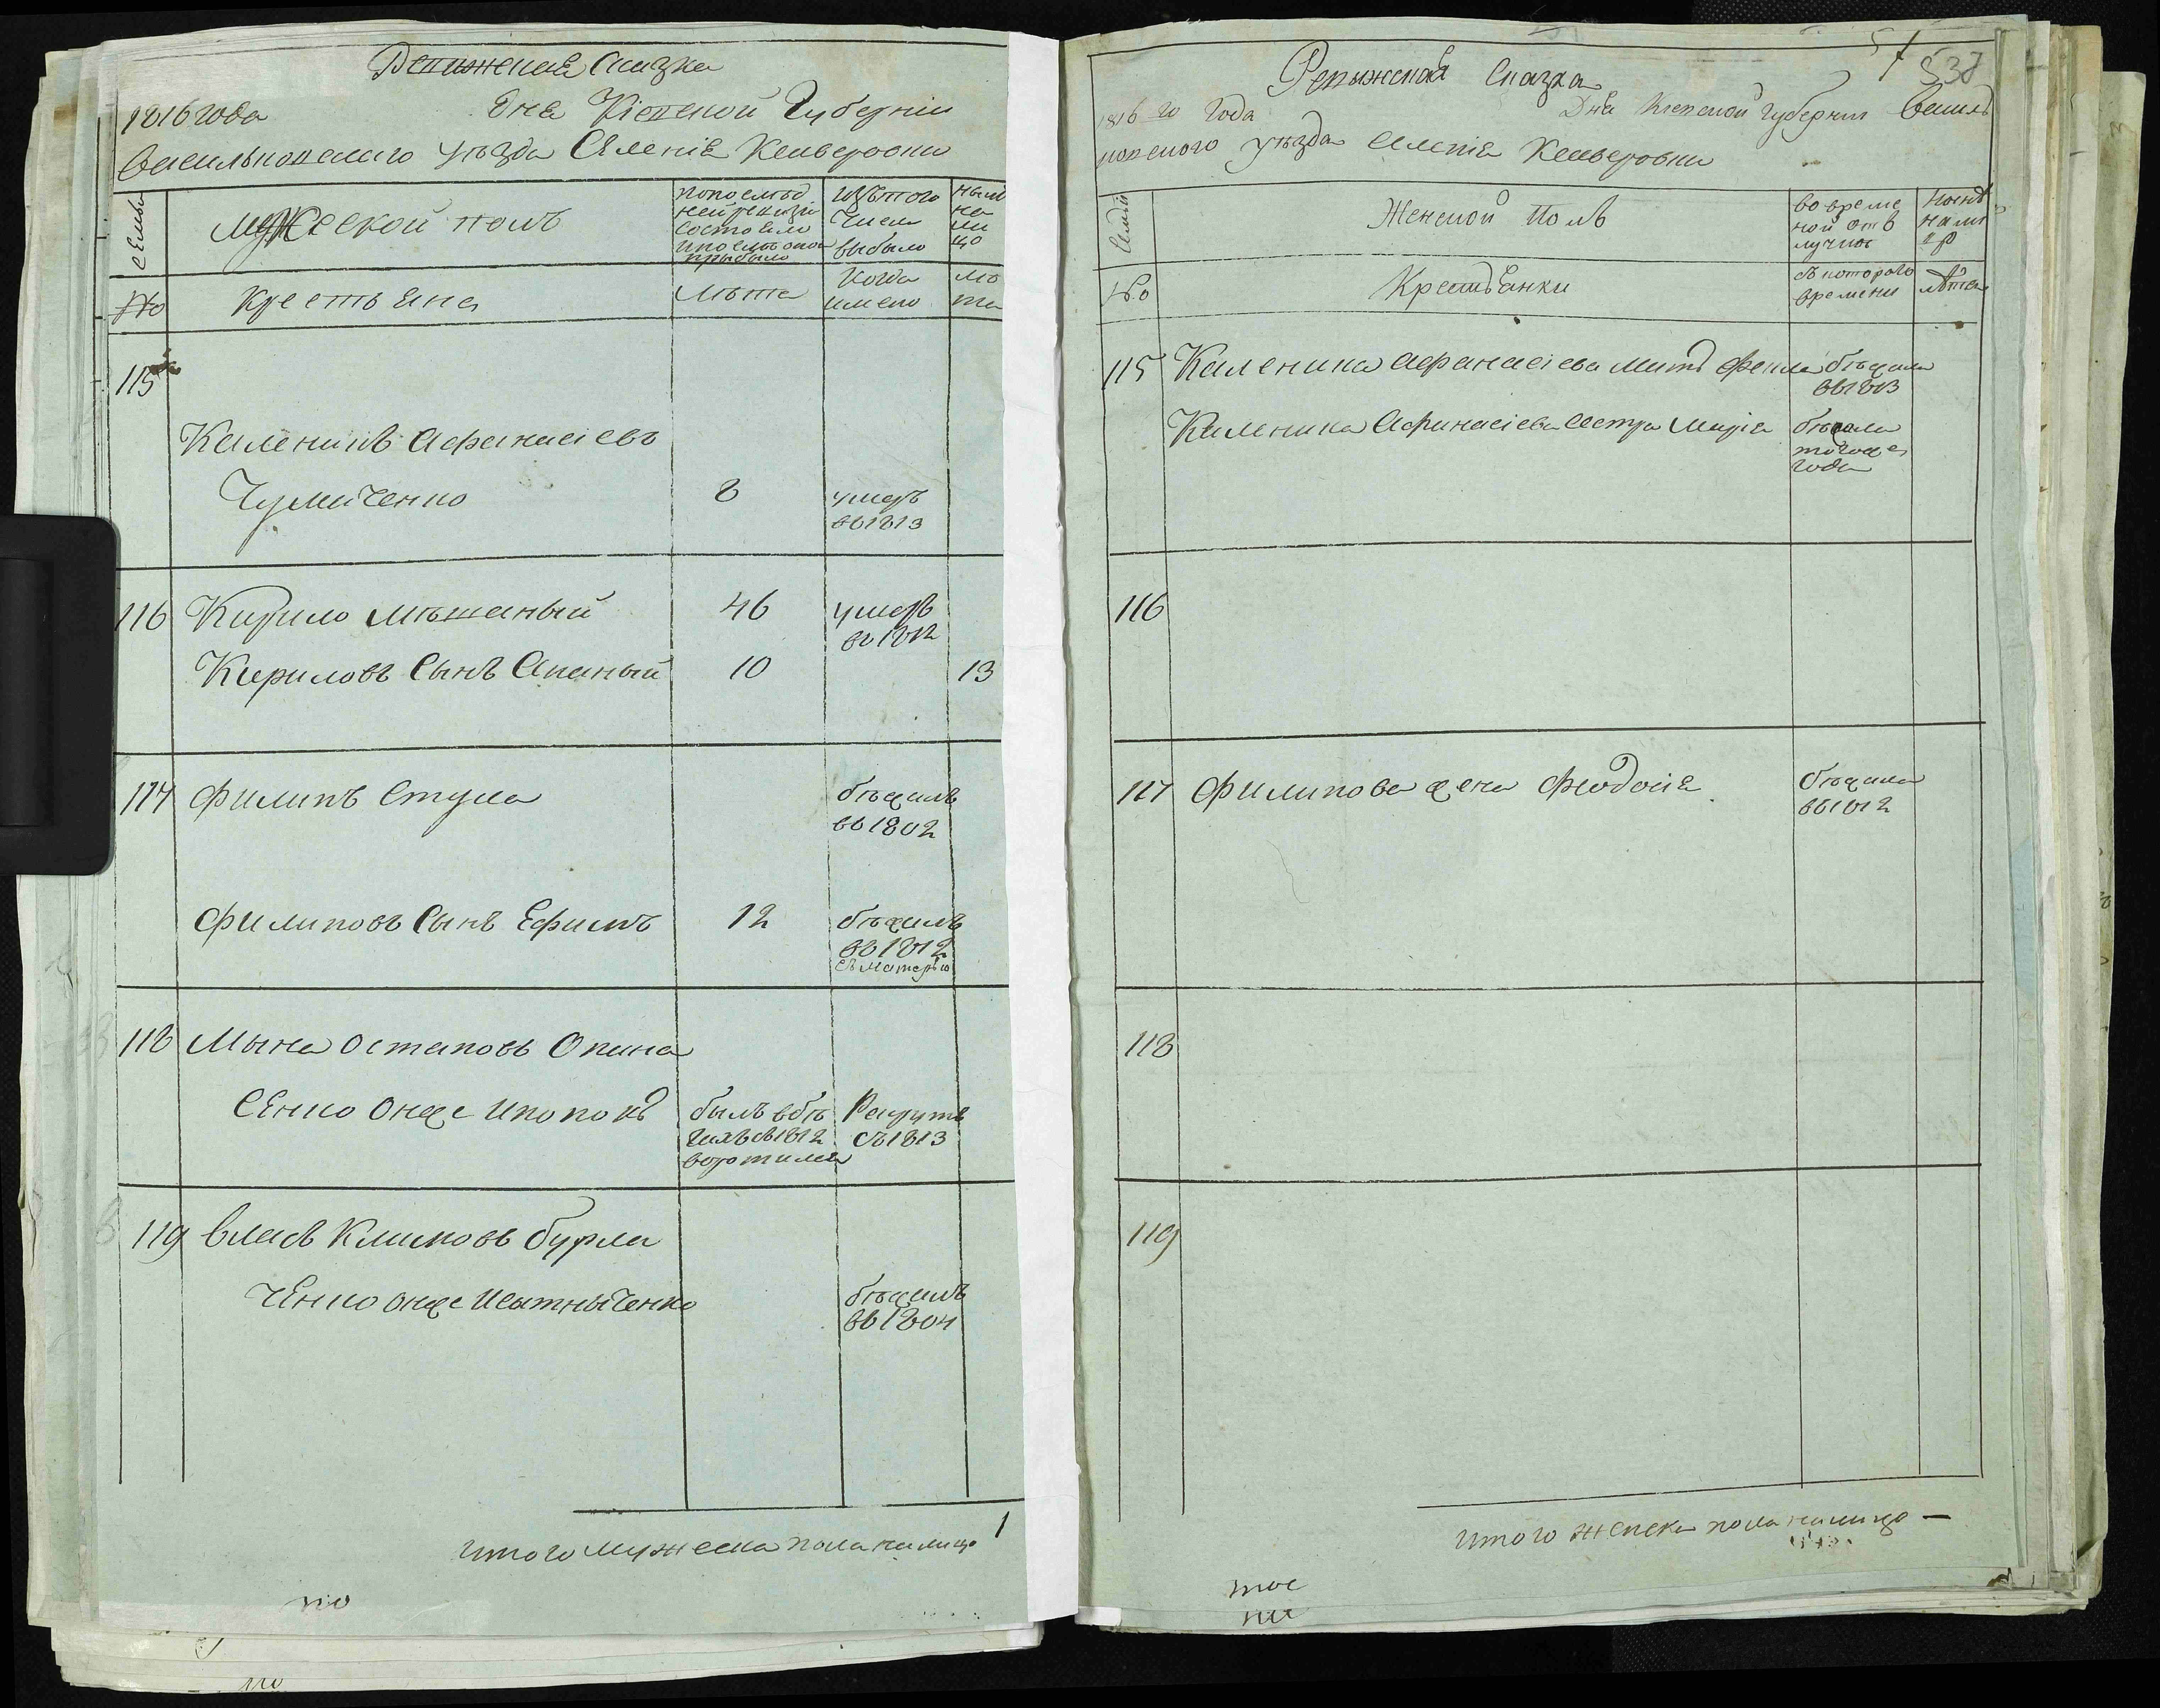 Ревижская Сказка
1816 года Дня Кіевской Губерніи
Васильковскаго Уѣзда Селенія Кашеровки
Семьи
Мужеской полъ
по послѣд
ней ревизіи
состояло
и послѣ оной
прибыло
Изъ того
Числа
выбыло
ныне
на
ли
цо
№
Крестьяна
Лѣта
Когда
имено
лѣ
та
115
Каленикъ Афанасіевъ
Чумаченко 8 умеръ
въ 1813
116 Кирило Мѣшаный 46 умеръ
въ 1812
Кириловъ Сынъ 10 13
117 Филипъ Стула бѣжалъ
въ 1802
Филиповъ Сынъ Ефимъ 12 бѣжалъ
въ 1812
съ матерью
118 Мына Остаповъ Опана
сенко онже и попокъ былъ въ бѣ Рекрутъ
гахъ съ 1812 съ 1813
воротился
119 Власъ Климовъ Бурла
ченко онже и Сытныченко бѣжалъ
въ 1804
Итого мужеска пола налицо 1
по
57
538
Ревыжская Сказка
1816 го Года Дня Кіевской Губерніи Василь
ковского Уѣзда Селенія Кашеровки
Семьи
Женской Полъ
во време
ной отъ
лучки
Нынѣ
на ли
цо
№
Крестьянки
съ котораго
времени
лѣта
115 Каленика Афанасіева мать Фекла бѣжала
въ 1813
Каленика Афанасіева Сестра Марія бѣжала
тогоже
года
116
117 Филипова жена Феодосія бѣжала
въ 1812
118
119
Итого женска пола налицо —